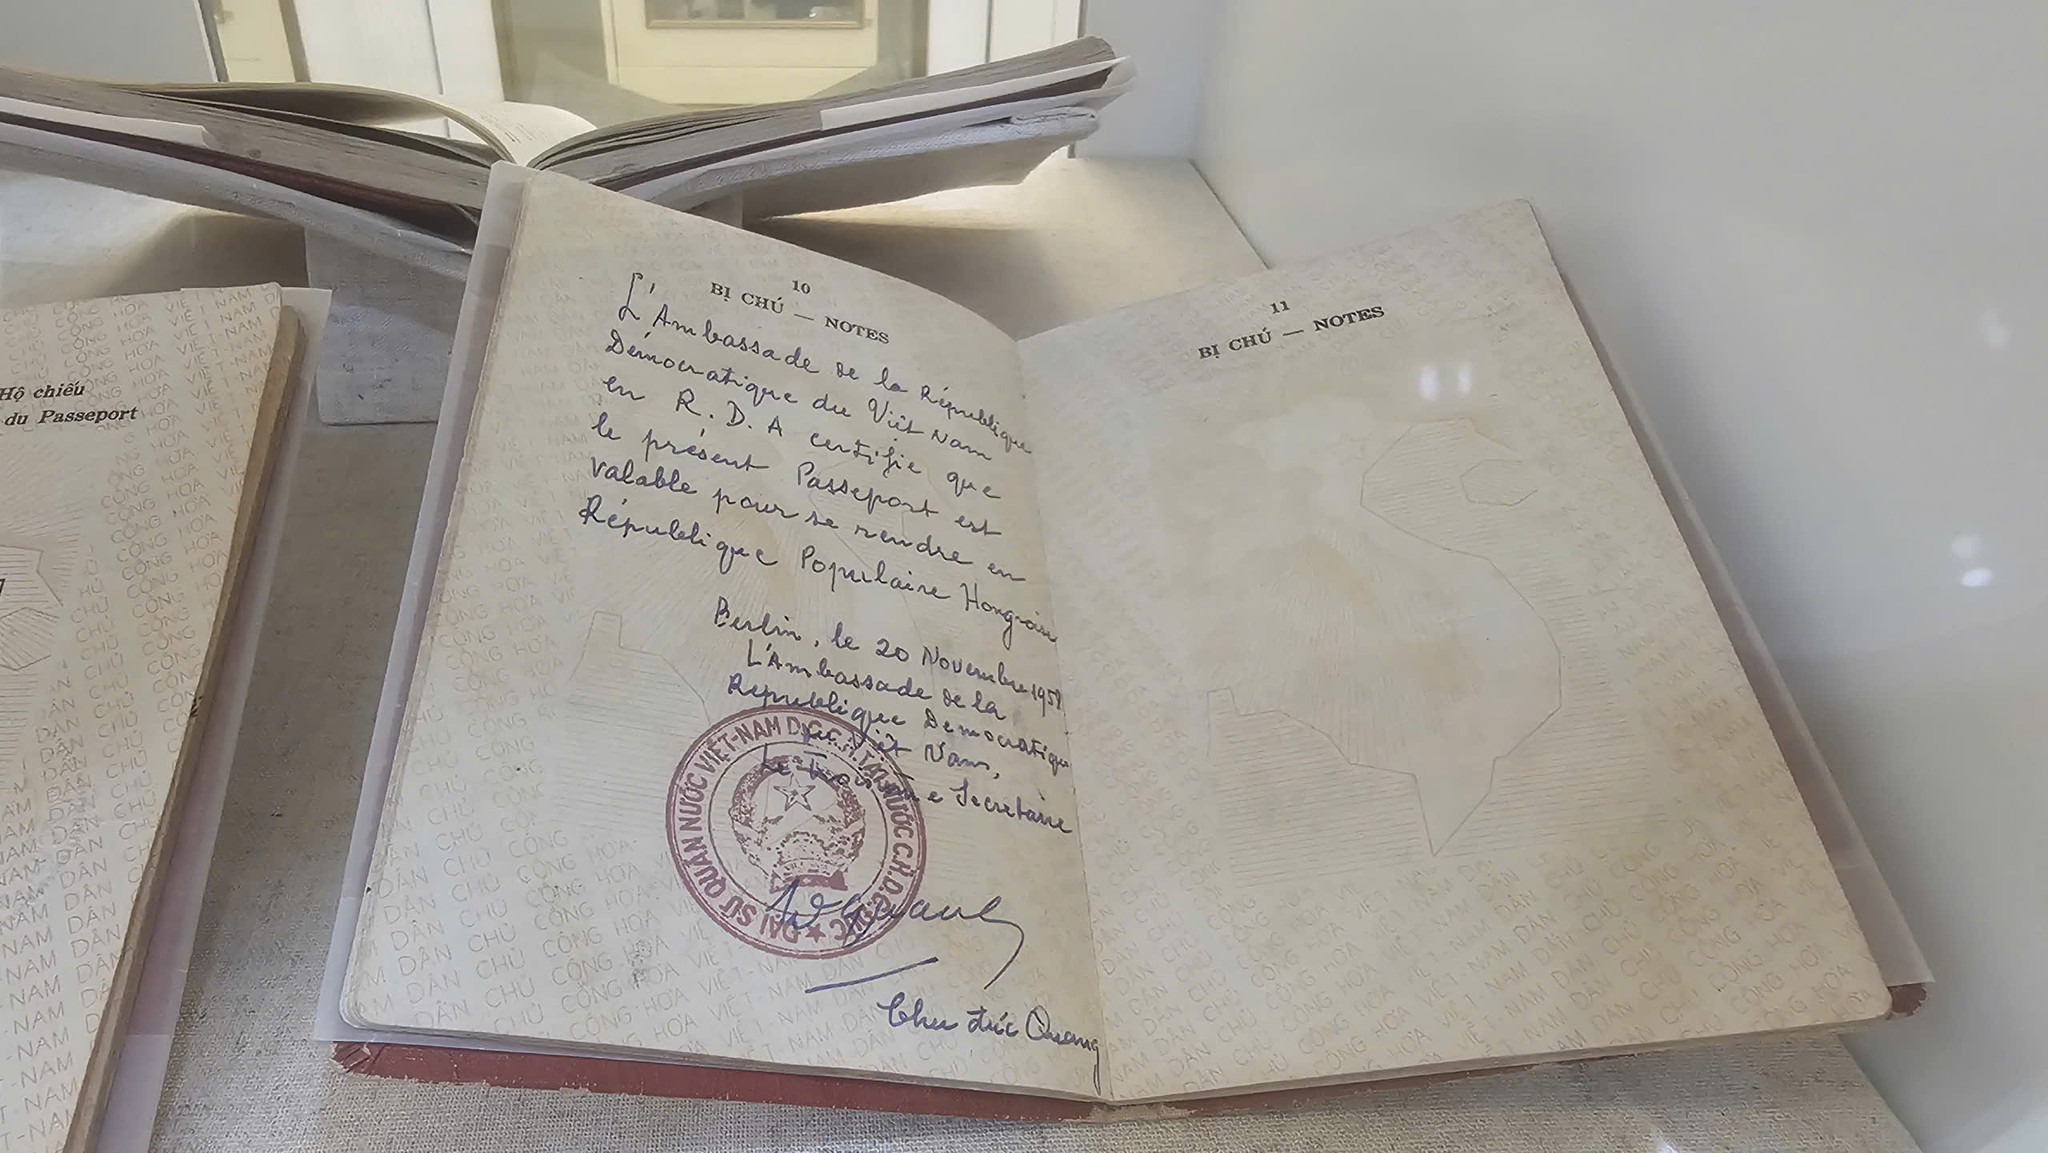 Hộ chiếu
du Passeport
10
BỊ CHÚ — NOTES
L'Ambassade de la République
Démocratique du Viêt Nam
en R.D.A certifie que
le présent Passeport est
valable pour se rendre en
République Populaire Hongroise
Berlin, le 20 Novembre 195
L'Ambassade de la
République Démocratique
du Viêt Nam,
Le Secrétaire
ĐẠI SỨ QUÁN NƯỚC VIỆT-NAM D.C.C.H. TẠI NƯỚC C.H.D.C. ĐỨC
Chu đức Quang
11
BỊ CHÚ — NOTES
VIỆT-NAM DÂN CHỦ CỘNG HÒA